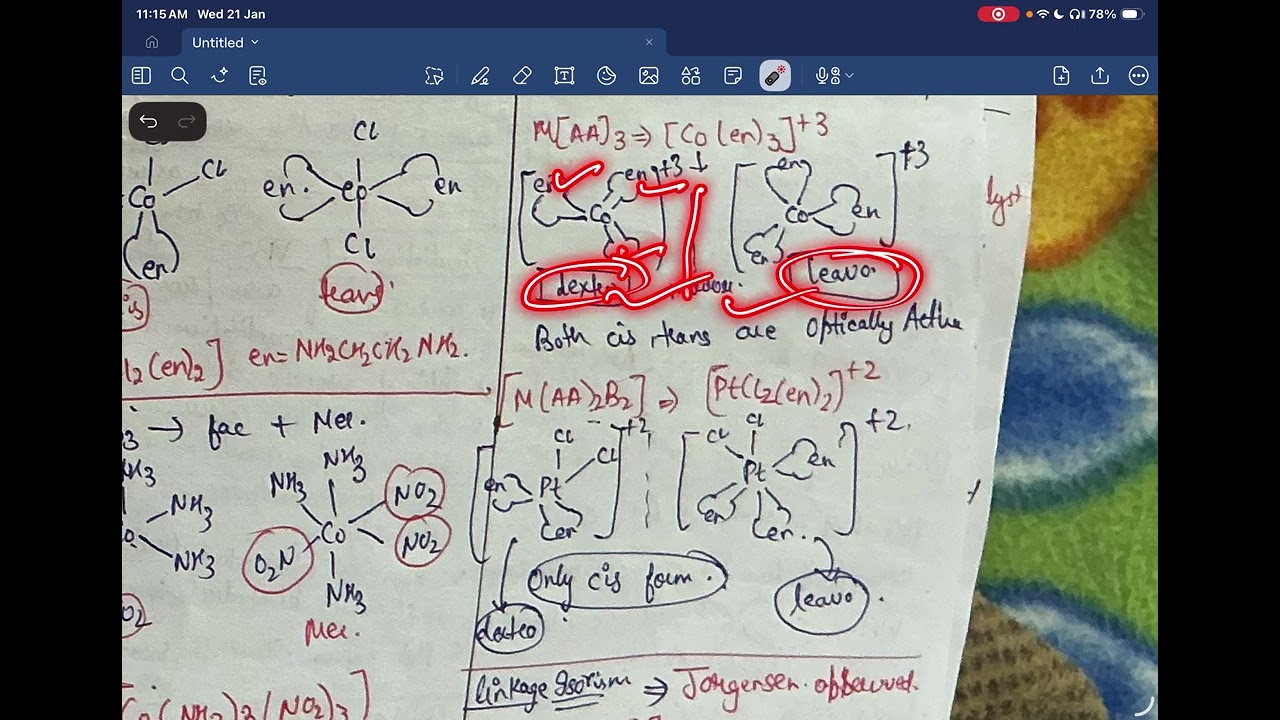 11:15 AM Wed 21 Jan
78%
Untitled
Cl
Co
Cl
en
Cl
en
en
Cl
trans
l2(en)2] en = NH2CH2CH2 NH2.
→ fac + Mer.
NH3
NH3
NH3
NH3
NO2
Co
NO2
O2N
NH3
NH3
NO2
Mer.
(NH3)3(NO2)3]
M[AA]3 ⇒ [Co(en)3]+3
en
en
+3
Co
en
Co
en
en
+3
dextro
leavo.
Both cis trans are Optically Active
[M(AA)2B2] ⇒ [PtCl2(en)2]+2
Cl
+2
Cl
en
Pt
en
Cl
Cl
+2.
Pt
en
en
en.
Only cis form.
leavo.
dextro
linkage Isorism ⇒ Jorgensen observed.